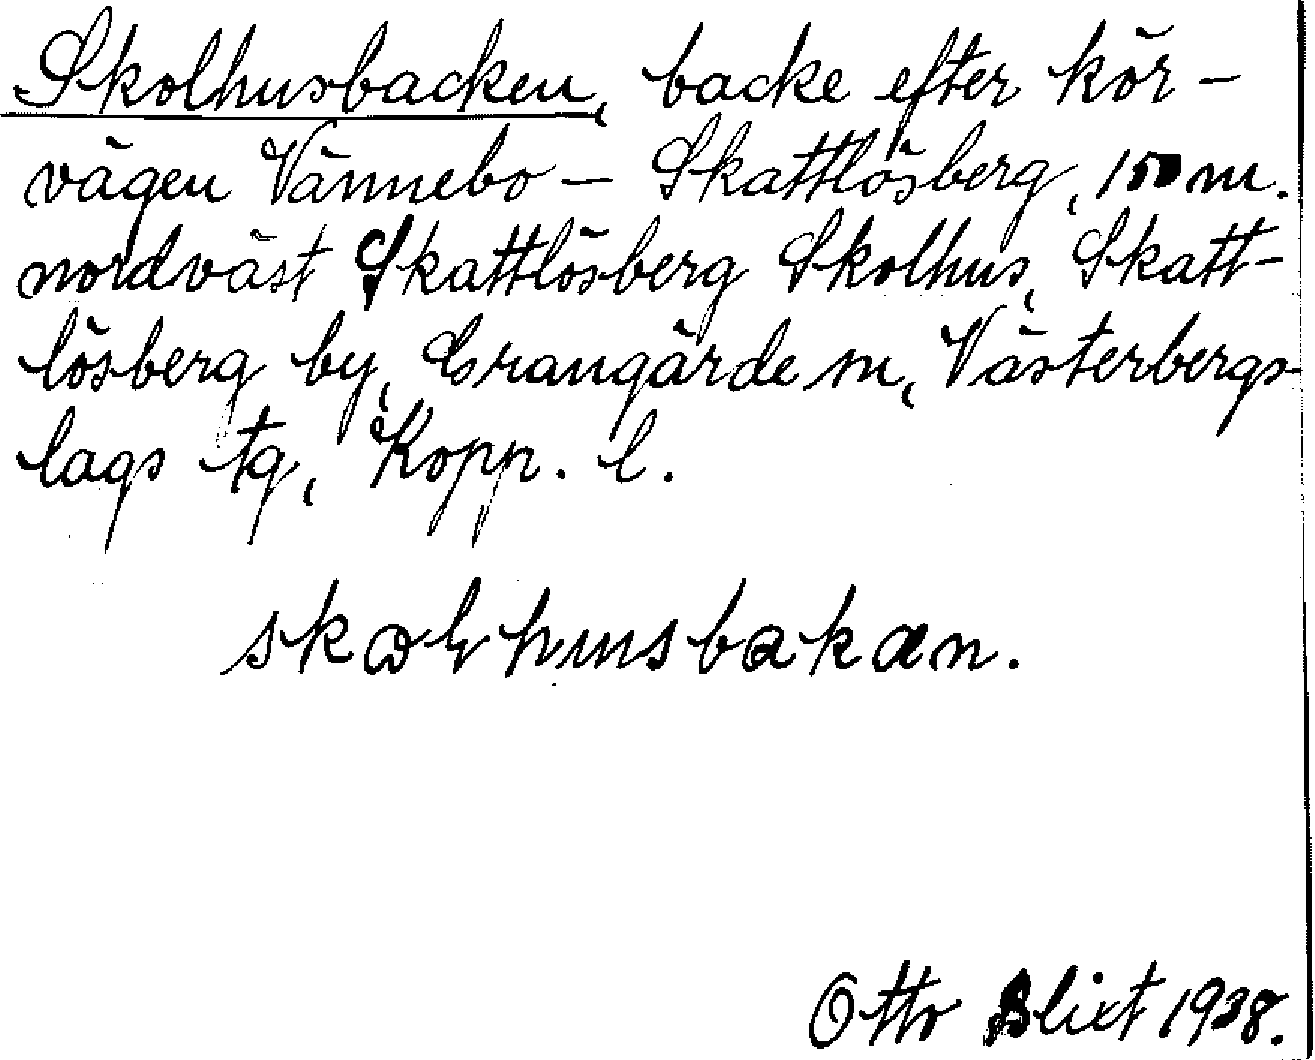 Skolhusbacken, backe efter kör-
vägen Vännebo – Skattlösberg, 150 m.
nordväst Skattlösberg Skolhus, Skatt-
lösberg by, Grangärde sn, Västerbergs-
lags tg, Kopp. l.
Otto Blixt 1938.